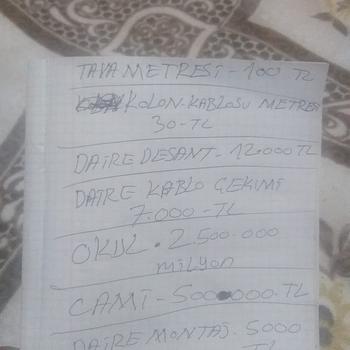 TAVA METRESİ - 100 TL
KOLON-KABLOSU METRESİ
30-TL
DAİRE DESANT - 12.000 TL
DAİRE KABLO ÇEKİMİ
7.000-TL
OKUL. 2.500.000
milyon
CAMİ - 500.000.TL
DAİRE MONTAJ. 5000
TL